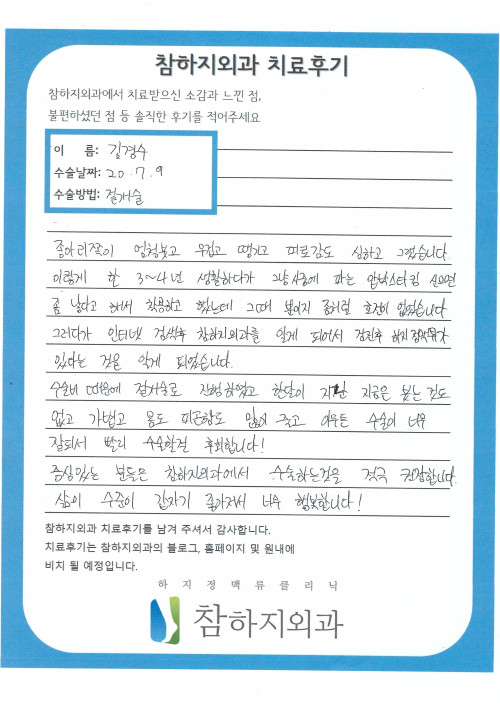 참하지외과 치료후기
참하지외과에서 치료받으신 소감과 느낀 점,
불편하셨던 점 등 솔직한 후기를 적어주세요
이 름: 김경수
수술날짜: 20.7.9
수술방법: 절개술
종아리쪽이 엄청붓고 무겁고 땡기고 피로감도 심하고 그랬습니다.
이렇게 한 3~4년 생활하다가 그냥 시중에 파는 압박스타킹 신으면
좀 낫다고 해서 착용하고 했는데 그때 뿐이지 좀처럼 호전이 없었습니다
그러다가 인터넷 검색후 참하지외과를 알게 되어서 검진후 하지정맥류가
있다는 것을 알게 되었습니다.
수술비 때문에 절개술로 진행하였고 한달이 지난 지금은 붓는것도
없고 가볍고 몸도 피곤함도 많이 죽고 아무튼 수술이 너무
잘되서 빨리 수술할걸 후회합니다!
증상있는 분들은 참하지외과에서 수술하는것을 적극 권장합니다.
삶의 수준이 갑자기 좋아져서 너무 행복합니다!
참하지외과 치료후기를 남겨 주셔서 감사합니다.
치료후기는 참하지외과의 블로그, 홈페이지 및 원내에
비치 될 예정입니다.
하지정맥류클리닉
참하지외과